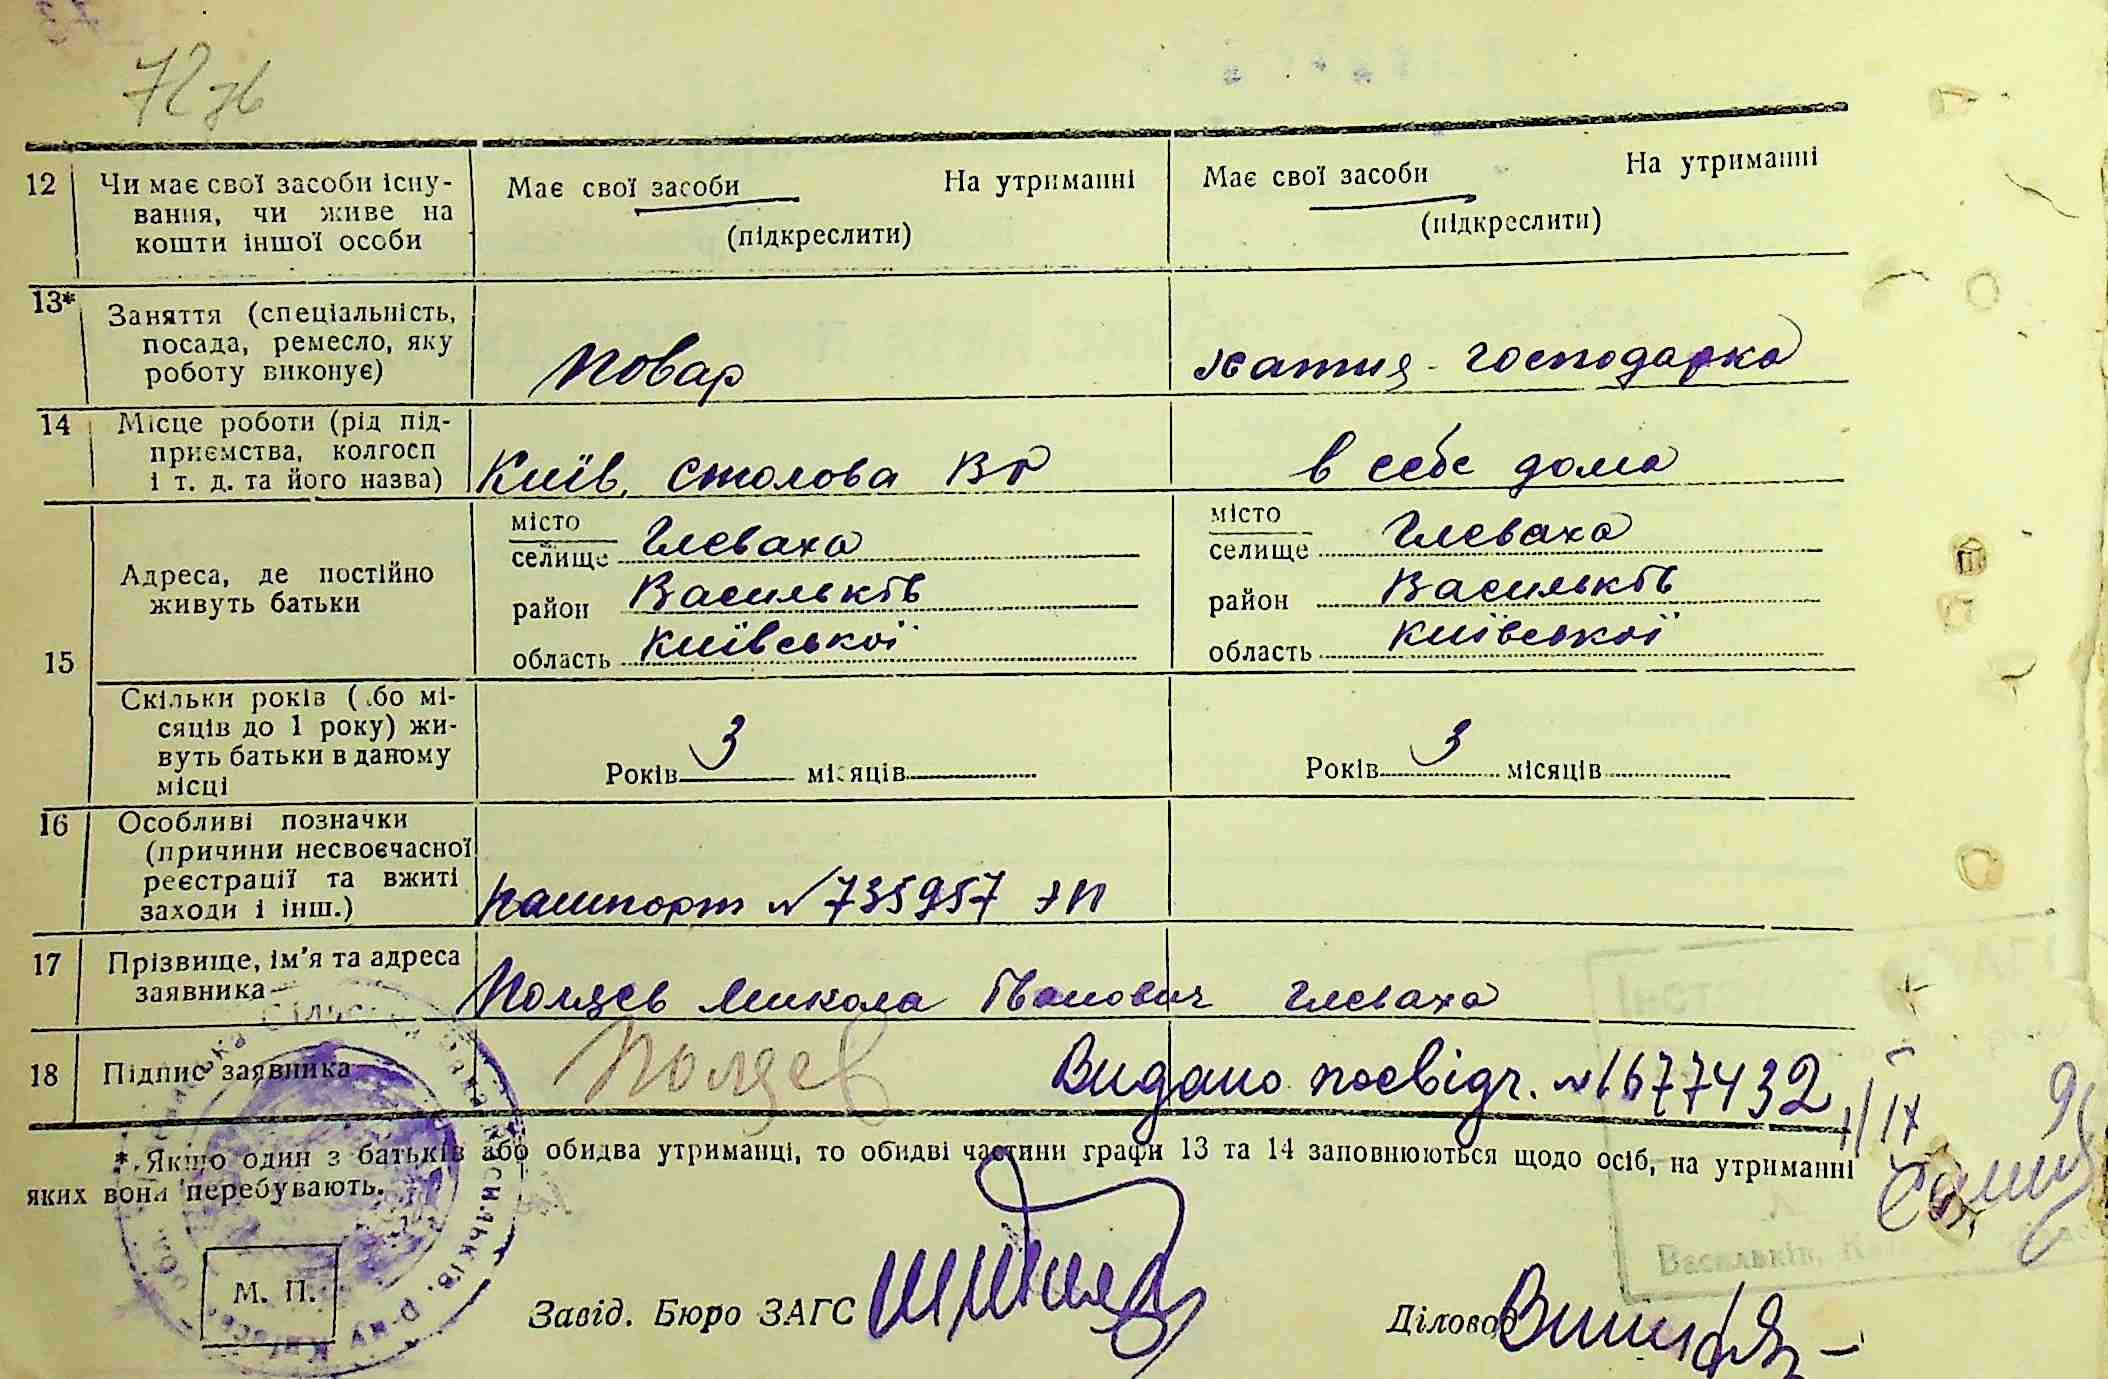 72 зв
12 Чи має свої засоби існу-
вання, чи живе на
кошти іншої особи
Має свої засоби На утриманні
(підкреслити)
Має свої засоби На утриманні
(підкреслити)
13* Заняття (спеціальність,
посада, ремесло, яку
роботу виконує)
Повар
хатня господарка
14 Місце роботи (рід під-
приємства, колгосп
і т. д. та його назва)
Київ, столова
в себе дома
15 Адреса, де постійно
живуть батьки
місто
селище Глеваха
район Васильків
область Київської
місто
селище Глеваха
район Васильків
область Київської
Скільки років (або мі-
сяців до 1 року) жи-
вуть батьки в даному
місці
Років 3 місяців
Років 3 місяців
16 Особливі позначки
(причини несвоєчасної
реєстрації та вжиті
заходи і інш.)
пашпорт № 735957
17 Прізвище, ім'я та адреса
заявника
Поляєв Микола Іванович Глеваха
18 Підпис заявника
Поляєв
Видано посвідч. №1677432
* Якщо один з батьків або обидва утриманці, то обидві частини графи 13 та 14 заповнюються щодо осіб, на утриманні
яких вони перебувають.
М. П.
Завід. Бюро ЗАГС
Діловод